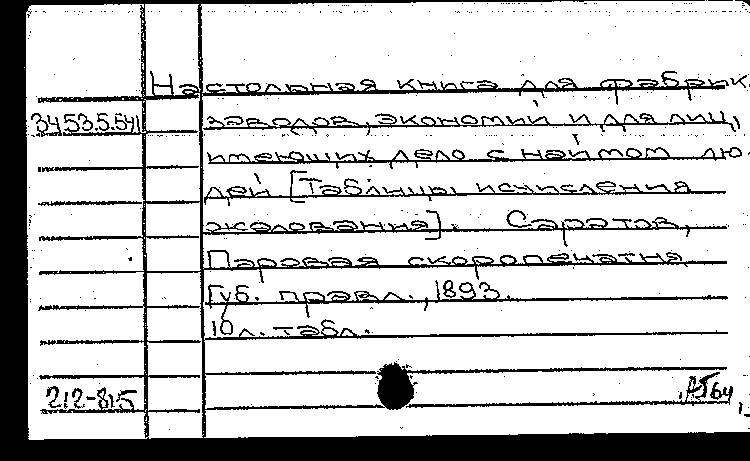 Настольная книга для фабрик,
34.53.5.541 заводов, экономий и для лиц,
имеющих дело с наймом лю-
дей [Таблицы исчисления
жалования]. Саратов,
Паровая скоропечатня
Губ. правл., 1893.
10 л. табл.
212-815